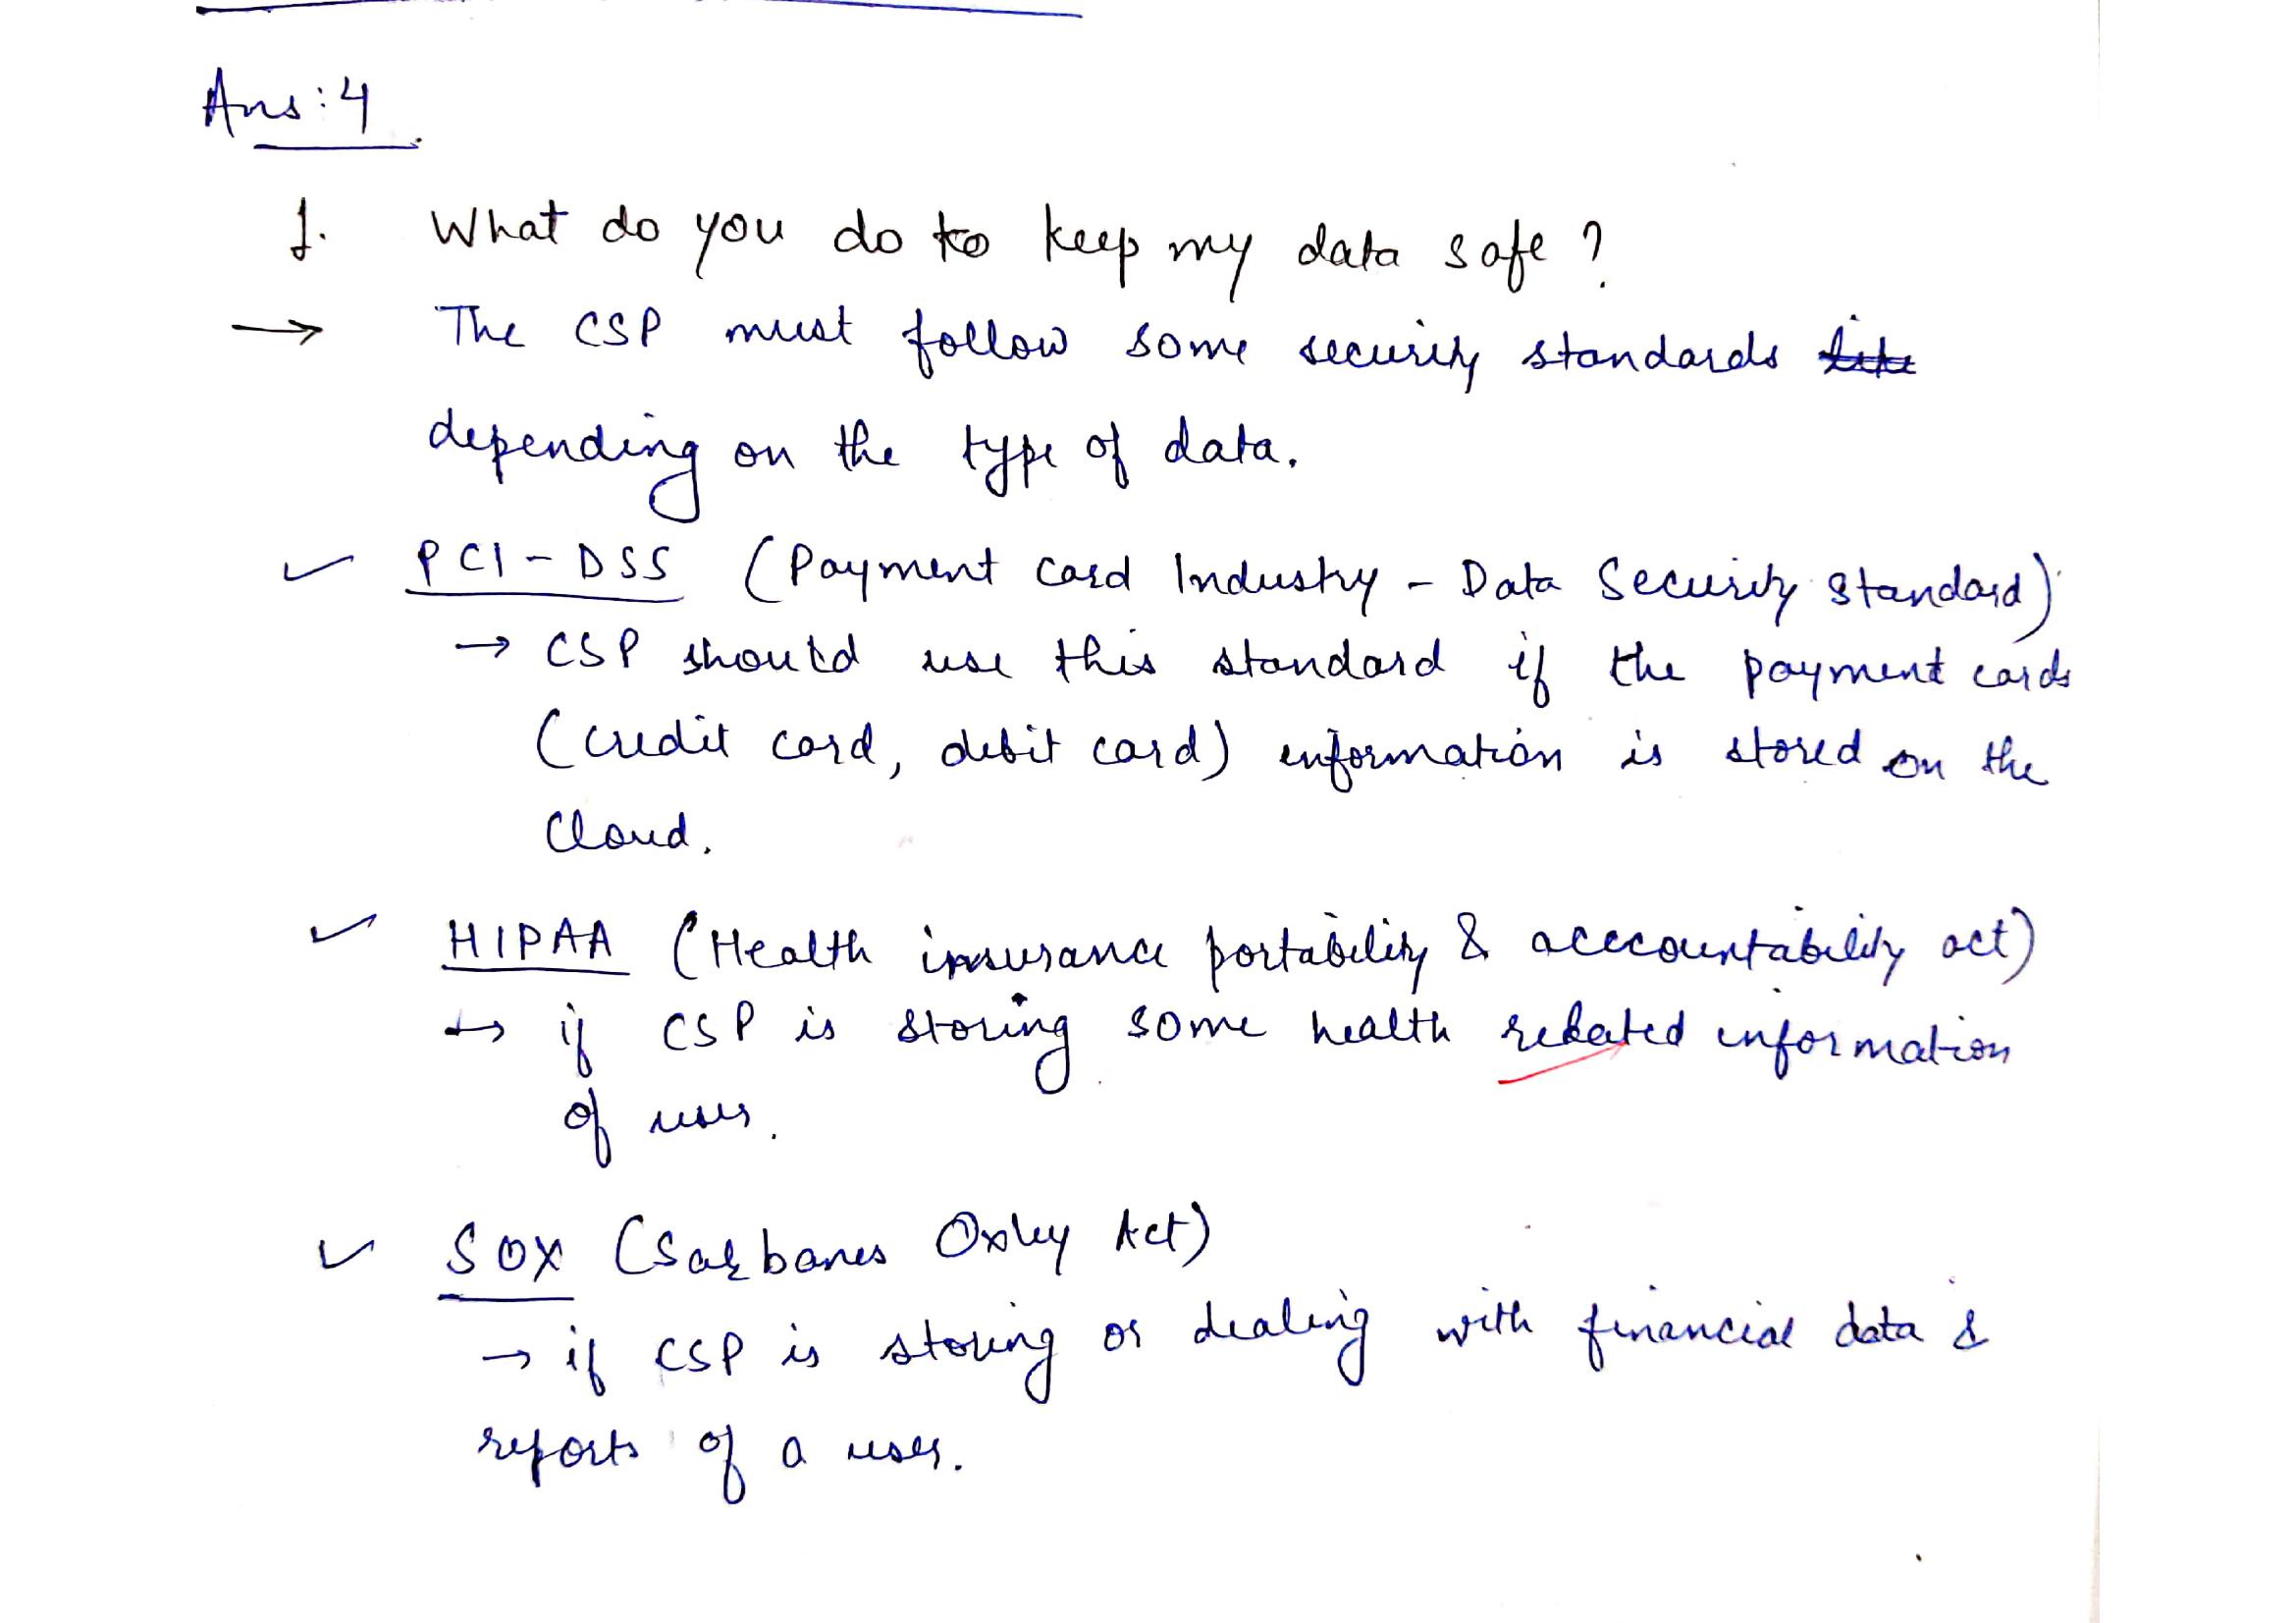 Ans:4
1. What do you do to keep my data safe?
→ The CSP must follow some security standards like
depending on the type of data.
✓ PCI-DSS (Payment Card Industry - Data Security Standard)
→ CSP should use this standard if the payment cards
(credit card, debit card) information is stored on the
Cloud.
✓ HIPAA (Health insurance portability & acccountability act)
→ if CSP is storing some health related information
of user.
✓ SOX (Sarbanes Oxley Act)
→ if CSP is storing or dealing with financial data &
reports of a user.